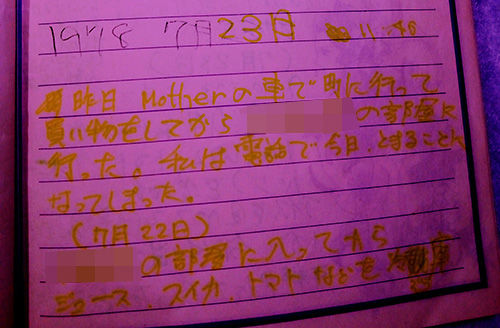 1978 7月23日 11:40
昨日 Motherの車で町に行って
買い物をしてから の部屋に
行った。私は電話で今日とまることに
なってしまった。
(7月22日)
の部屋に入ってから
ジュース、スイカ、トマトなどを冷蔵庫